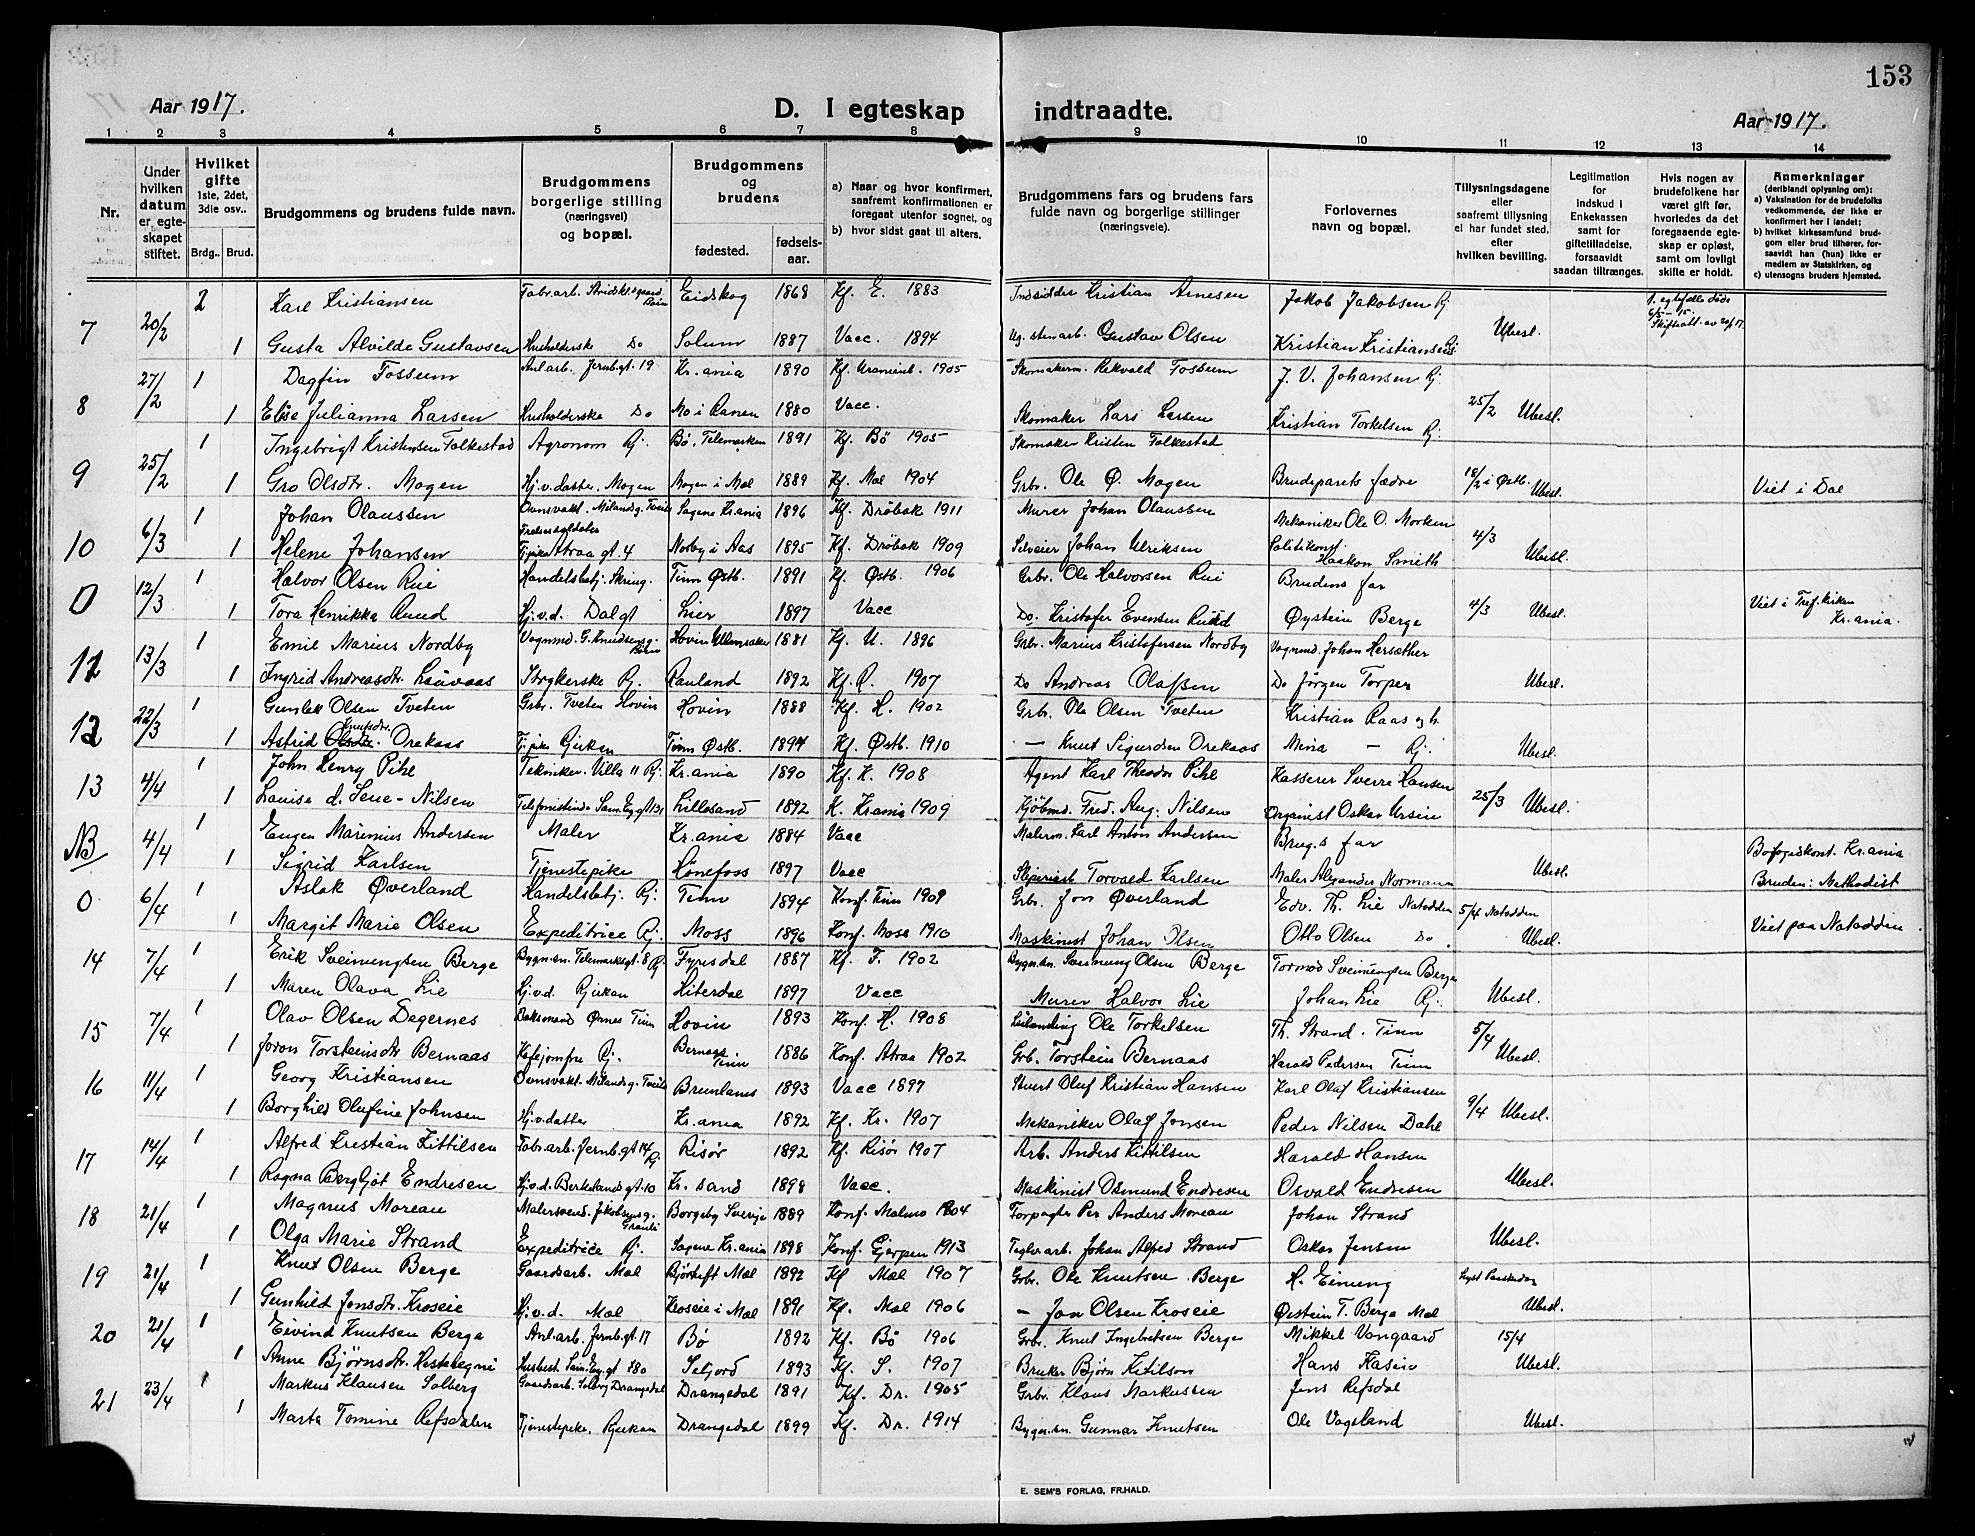 153
Aar 1917. D. I egteskap indtraadte. Aar 1917.
1 2 3 4 5 6 7 8 9 10 11 12 13 14
Nr.
Under hvilken datum er egteskapet stiftet.
Hvilket gifte 1ste, 2det, 3die osv..
Brdg.. Brud.
Brudgommens og brudens fulde navn.
Brudgommens borgerlige stilling (næringsvei) og bopæl.
Brudgommens og brudens
fødested. fødsels-aar.
a) Naar og hvor konfirmert, saafremt konfirmationen er foregaat utenfor sognet, og
b) hvor sidst gaat til alters.
Brudgommens fars og brudens fars fulde navn og borgerlige stillinger (næringsveie).
Forlovernes navn og bopæl.
Tillysningsdagene eller saafremt tillysning ei har fundet sted, efter hvilken bevilling.
Legitimation for indskud i Enkekassen samt for giftetilladelse, forsaavidt saadan tiltrænges.
Hvis nogen av brudefolkene har været gift før, hvorledes da det foregaaende egteskap er opløst, samt om lovligt skifte er holdt.
Anmerkninger (deriblandt oplysning om):
a) Vaksination for de brudefolks vedkommende, der ikke er konfirmert her i landet;
b) hvilket kirkesamfund brudgom eller brud tilhører, forsaavidt han (hun) ikke er medlem av Statskirken, og
c) utensogns bruders hjemsted.
7 20/2 2 Karl Kristiansen Fabr.arb. Eidskog 1868 Kf. E. 1883 Indsidder Kristian Arnesen Jakob Jakobsen Rj. 1. egtefælle døde
1 Gusta Alvilde Gustavsen Husholderske Do Solum 1887 Vacc. 1894 Ug. stenarb. Gustav Olsen Kristian Kristiansen Rj. Ubesl. Skifteatt. av 20/1 17.
8 27/2 1 Dagfin Fossum Anl.arb. Jernb.gt. 19 Kr.ania 1890 Kf. Uranienb. 1905 Skomakerm. Rekvald Fossum J. V. Johansen Rj.
1 Elise Julianna Larsen Husholderske Do Mo i Ranen 1880 Vacc. Skomaker Lars Larsen Kristian Torkelsen Rj. 25/2 Ubesl.
9 25/2 1 Ingebrigt Kristensen Folkestad Agronom Rj. Bø. Telemarken 1891 Kf. Bø 1905 Skomaker Kristen Folkestad
1 Gro Olsdtr. Mogen Hj.v.datter. Mogen Mogen i Mæl 1889 Kf. Mæl 1904 Grbr. Ole Ø. Mogen Brudeparets fædre 18/2 i Østb. Ubesl. Viet i Dal
10 6/3 1 Johan Olaussen Ovnsvakt. Milandsg. Tveito Sagene Kr.ania 1896 Kf. Drøbak 1911 Murer Johan Olaussen Mekaniker Ole O. Morken
1 Helene Johansen Frelsessoldater Fipike Atraa gt. 4 Nordby i Aas 1895 Kf. Drøbak 1909 Johan Ulriksen Politikonst. Haakon Smith 4/3 Ubesl.
0 12/3 1 Halvor Olsen Rue Handelsbetj. Skring. Tinn Østb. 1891 Kf. Østb. 1906 Grbr. Ole Halvorsen Rui Brudens far
1 Tora Henrikka Ruud Hj.v.d. Dalgt Lier 1897 Vacc Do. Kristofer Evensen Ruud Øystein Berge 4/3 Ubesl. Viet i Tref. kirken Kr.ania.
11 13/3 1 Emil Marius Nordby Vognmd. G. Knudsensg. Hovin Ullensaker 1881 Kf. U. 1896 Grbr. Marius Kristofersen Nordby Vognmd. Johan Hersæther
1 Ingrid Andreasdtr. Løuvaas Strykerske Rj. Rauland 1892 Kf. R. 1907 Do Andreas Olaßen Do Jørgen Torper Ubesl.
12 22/3 1 Gunlek Olsen Tveten Grbr. Tveten Hovin Hovin 1888 Kf. H. 1902 Grbr. Ole Olsen Tveten Kristian Raas og h.
1 Astrid Olsdtr. Knutsdtr. Orekaas Tj.pike Rjukan Tinn Østb. 1894 Kf. Østb. 1910 — Knut Sigurdsen Orekaas Mina — Rj. Ubesl.
13 4/4 1 John Henry Pihl Tekniker. Villa 11 Rj. Kr.ania 1890 Kf. K. 1908 Agent Karl Theodor Pihl Kasserer Sverre Hansen
1 Louise d. Seue-Nilsen Telefonistinde Sam.Eyg.gt 121 Lillesand 1892 K. Kr.ania 1909 Kjøbmd. Fred. Aug. Nilsen Organist Oskar Ursin 25/3 Ubesl.
NB 4/4 1 Eugen Marinius Andersen Maler Kr.ania 1884 Vacc Malerm. Karl Anton Andersen Brug.s far
1 Sigrid Karlsen Tjenestepike Hønefoss 1897 Vacc Torvald Karlsen Maler Alexander Normann Ubesl. Bofogedkont. Kr.ania Bruden: Methodist
0 6/4 1 Aslak Øverland Handelsbetj. Rj. Tinn 1894 Konf. Tinn 1909 Grbr. Jon Øverland Edv. Th. Lie Notodden
1 Margit Marie Olsen Expeditrice Rj. Moss 1896 Konf. Moss 1910 Maskinist Johan Olsen Otto Olsen Do 5/4 Notodden Ubesl. Viet paa Notodden.
14 7/4 1 Erik Sveinungsen Berge Bygn.sn. Telemarksgt. 8 Rj. Fyresdal 1887 Kf. F. 1902 Bygn.sn. Sveinung Olsen Berge Tormod Sveinungsen Berge
1 Maren Olava Lie Hj.v.d. Rjukan Hiterdal 1897 Vacc Murer Halvor Lie Johan Lie Rj. Ubesl.
15 7/4 1 Olav Olsen Dagernes Baksmand Ørnes Tinn Hovin 1893 Konf. H. 1908 Leilænding Ole Torkelsen Th. Strand. Tinn
1 Joron Torsteinsdtr Bernaas Kafejomfru Rj. Bernaas Tinn 1886 Konf. Atraa 1902 Grb. Torstein Bernaas Harald Pedersen Tinn 5/4 Ubesl.
16 11/4 1 Georg Kristiansen Ovnsvakt. Milandsg. Tveito Brunlanes 1893 Vacc 1897 Stuert Oluf Kristian Hansen Karl Olaf Kristiansen
1 Borghild Olufine Johnsen Hj.v.datter Kr.ania 1892 Kf. Kr. 1907 Mekaniker Olaf Jonsen Peder Nilsen Dahl 9/4 Ubesl.
17 14/4 1 Alfred Kristian Kittilsen Fabr.arb. Jernb.gt 14 Rj. Risør 1892 Kf. Risør 1907 Arb. Anders Kittilsen Harald Hansen
1 Ragna Bergljot Endresen Hj.v.d. Berkelandsgt. 10 Kr.sand 1898 Vacc. Maskinist Osmund Endresen Osvald Endresen Ubesl.
18 21/4 1 Magnus Moreau Malersvend. Jakobsensg. Borgeby Sverige 1889 Konf. Malmø 1904 Forpagter Per Anders Moreau Johan Strand
1 Olga Marie Strand Expeditrice Rj. Sagene Kr.ania 1898 Konf. Gjerpen 1913 Teglv.arb. Johan Alfred Strand Oskar Jensen Ubesl.
19 21/4 1 Knut Olsen Berge Gaardsarb. Mæl Bjørtuft Mæl 1892 Kf Mæl 1907 Grbr. Ole Knutsen Berge H. Einung
1 Gunhild Jonsdtr. Kroseie Hj.v.d. Mæl Kroseie i Mæl 1891 Kf. Mæl 1906 — Jon Olsen Kroseie Øistein T. Berge Mæl Lyst Paaskedag Ubesl.
20 21/4 1 Eivind Knutsen Berge Anl.arb. Jernb.gt. 17 Bø 1892 Kf. Bø 1906 Grbr. Knut Ingebretsen Berge Mikkel Vangaard 15/4
1 Anne Bjørnsdtr. Husbest. Sam.Eyg.gt 180 Seljord 1893 Kf S. 1907 Bruker Bjørn Kitilson Hans Kasin Ubesl.
21 23/4 1 Markus Klausen Solberg Gaardsarb. Solberg Drangedal Drangedal 1891 Kf. Dr. 1905 Grbr. Klaus Markussen Jens Refsdal
1 Marta Tomine Refsdalen Tjenestepike, Rjukan Drangedal 1899 Kf. Dr. 1914 Bygn.sn. Gunnar Knutsen Ole Vogsland Ubesl.
E. SEM'S FORLAG, FR.HALD.